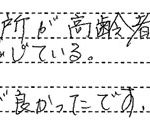 所が高齢者
じている。
良かったです。